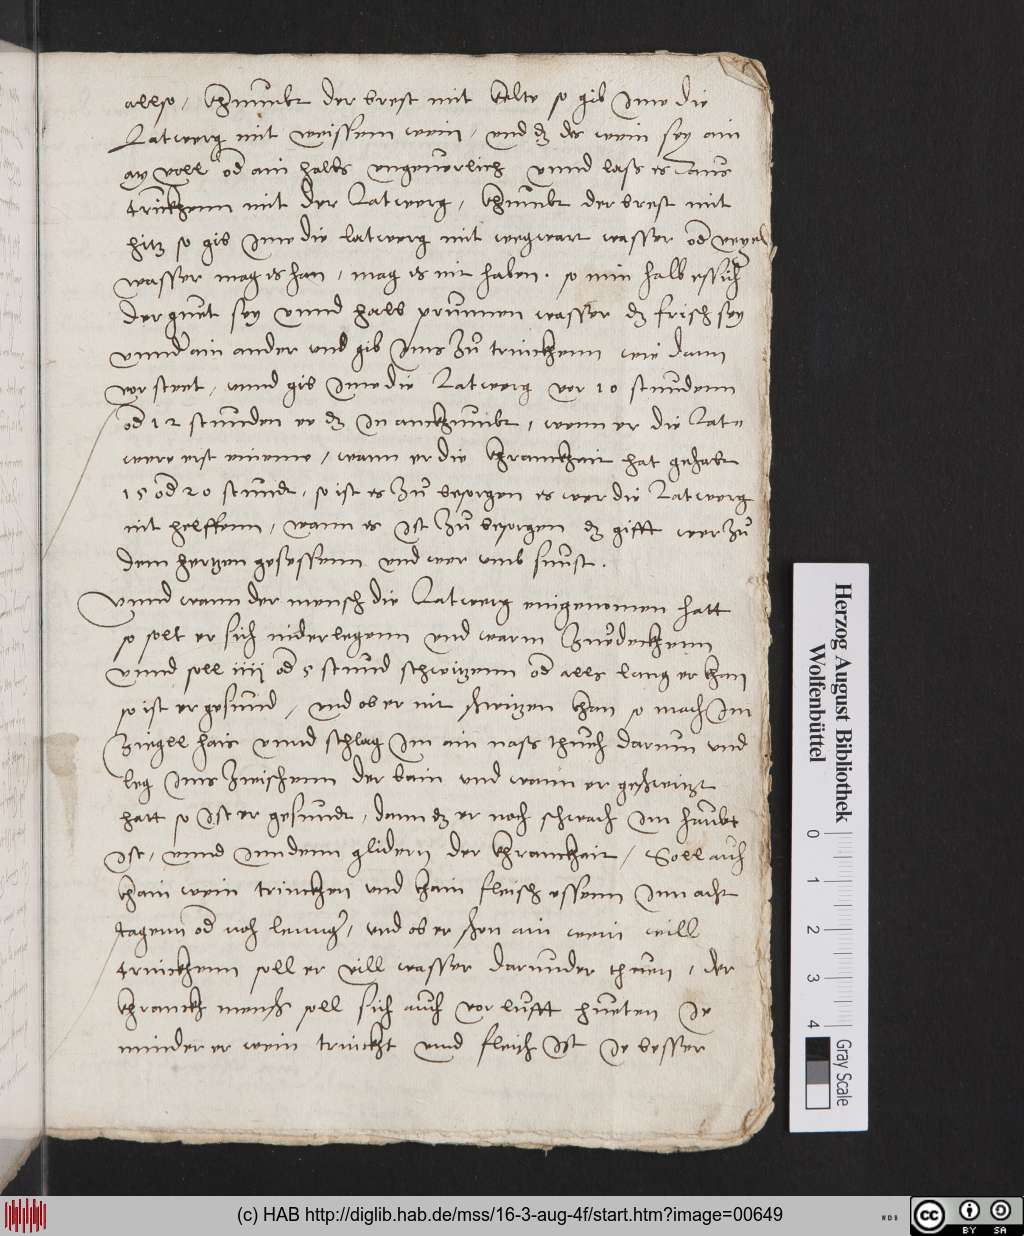 allso, khumbt der brest mit kelte so gib Ime die
Latwerg mit weissem wein, und dz der wein sey ain
ay voll od ain halbs ungeverlich unnd lass es aus
trinckhenn mit der Latwerg, khumbt der brest mit
hitz so gib Ime die latwerg mit wegwart wasser od veyel
wasser mag es han, mag es nit haben. so nim halb essich
der guet sey unnd halb prunnen wasser dz frisch sey
unnder ain ander und gib Ims zu trinckhenn wie dann
vor steet, unnd gib Ime die Latwerg vor 10 stundenn
od 12 stunden ee dz In anckhumbt, wenn er die Lat=
werg erst eineme, wann er die khranckhait hat gehabt
15 od 20 stundt, so ist es zu besorgen es wer die Latwerg
nit helffenn, wann es Ist zu besorgen dz gifft wer zu
dem hertzen gesessenn und wer umb sunst.
Unnd wann der mensch die Latwerg eingenomen hatt
so solt er sich niderlegenn und warm zuedeckhenn
unnd soll iiii od 5 stund schwitzenn od alls lang er khan
so ist er gesund, und ob er nit schwitzen khan so mach Im
Ziegell hais unnd schlag Im ain nass thuech darum und
leg Ims zwischenn der bain und wann er geschwitzt
hatt so Ist er gesundt, dann dz er noch schwach Im haubt
Ist, unnd Inn denn glidern der khranckhait, Soll auch
khain wein trinckhen und khain fleisch essenn Inn acht
tagenn od noch lennger, und ob er schon ain wein will
trinckhenn soll er vill wasser darunder thuen, der
khranck mensch soll sich auch vor lufft hueten Ie
minder er wein trinckht unnd fleisch Ist Ie besser
Herzog August Bibliothek
Wolfenbüttel
0 1 2 3 4
Gray Scale
(c) HAB http://diglib.hab.de/mss/16-3-aug-4f/start.htm?image=00649
WDB
cc
BY SA